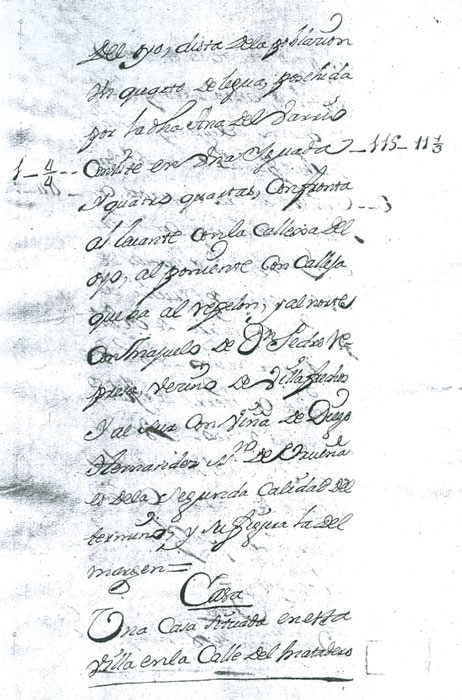 del oyo, dista de la poblacion
Un quarto de legua, posehida
por la dha Ana del Barrio
1 - 4/4 -- Consiste en Una Yguada - 115 - 11 1/3
Y quatro quartas, Confronta
al levante con la Calleja del
oyo, al poniente Con Calleja
que ba al , y al norte
Con majuelo de Dn Pedro Ve
, vecino de Villa
Y al Sur Con viña de Diego
Hernandez Vº de Urueña
es de la Segunda Calidad del
termino, y su figura la del
margen =
Casa
Una Casa situada en esta
Villa en la Calle del matadero